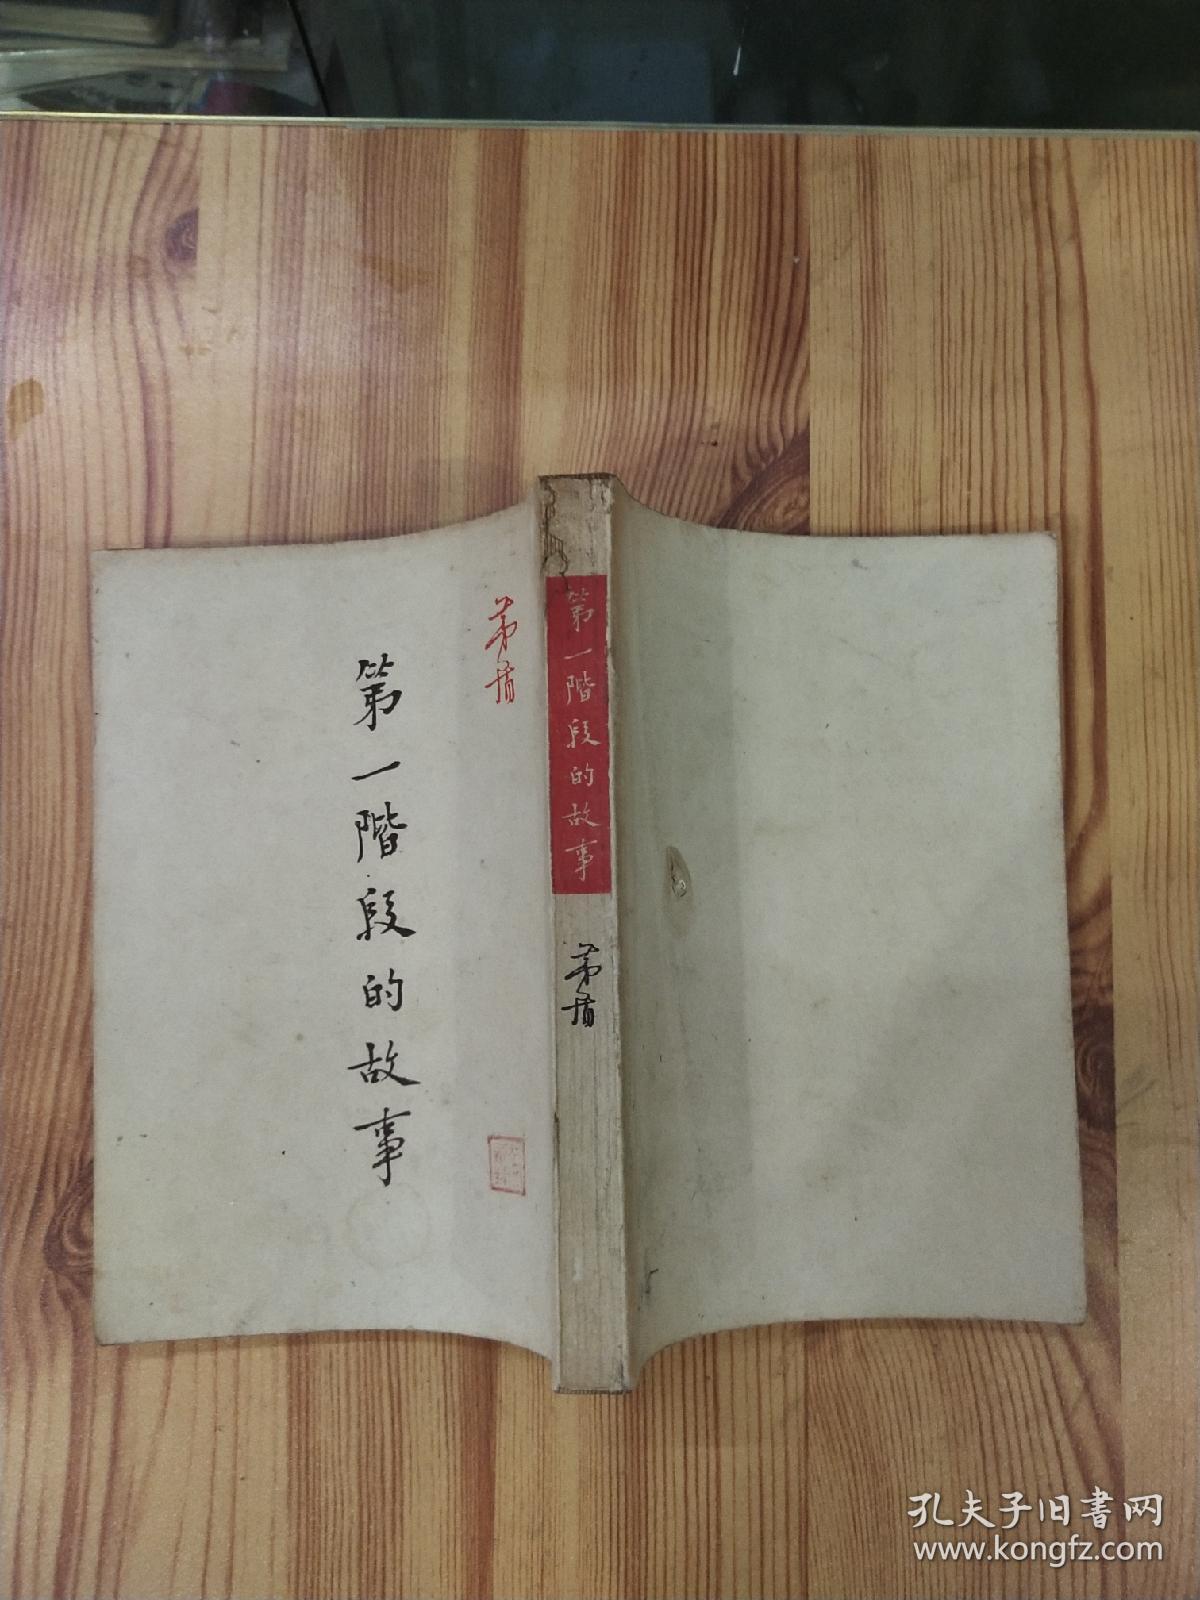 茅盾
第一階段的故事
第一階段的故事
茅盾
孔夫子旧书网
www.kongfz.com